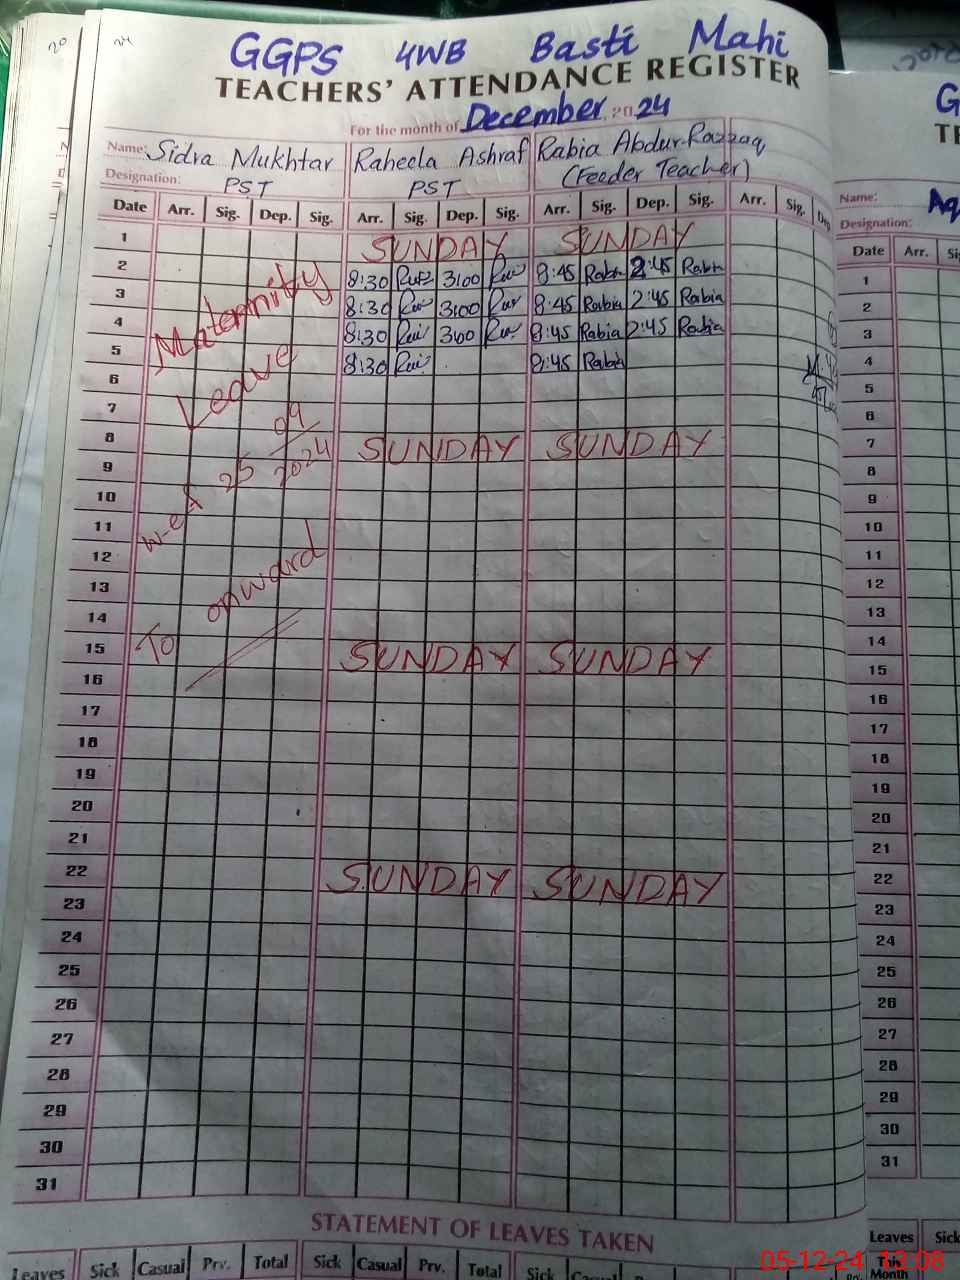 GGPS 4WB Basti Mahi
TEACHERS' ATTENDANCE REGISTER
For the month of December 2024
Name: Sidra Mukhtar Raheela Ashraf Rabia Abdur-Razzaq
Designation: PST PST (Feeder Teacher)
Date Arr. Sig. Dep. Sig. Arr. Sig. Dep. Sig. Arr. Sig. Dep. Sig. Arr. Sig. Dep
1 SUNDAY SUNDAY
2 8:30 3:00 8:45 Rabia 2:45 Rabia
3 8:30 3:00 8:45 Rabia 2:45 Rabia
4 8:30 300 8:45 Rabia 2:45 Rabia
5 8:30 8:45 Rabia
6
7
8 SUNDAY SUNDAY
9
10
11
12
13
14
15 SUNDAY SUNDAY
16
17
18
19
20
21
22 SUNDAY SUNDAY
23
24
25
26
27
28
29
30
31
Maternity
Leave
w-e-f 25 09
2024
To onward
STATEMENT OF LEAVES TAKEN
Leaves Sick Casual Prv. Total Sick Casual Prv. Total Sick Casual
G
TE
Name: Aq
Designation:
Date Arr. Si
1
2
3
4
5
6
7
8
9
10
11
12
13
14
15
16
17
18
19
20
21
22
23
24
25
26
27
28
29
30
31
Leaves Sick
This
Month
05-12-24 13:08